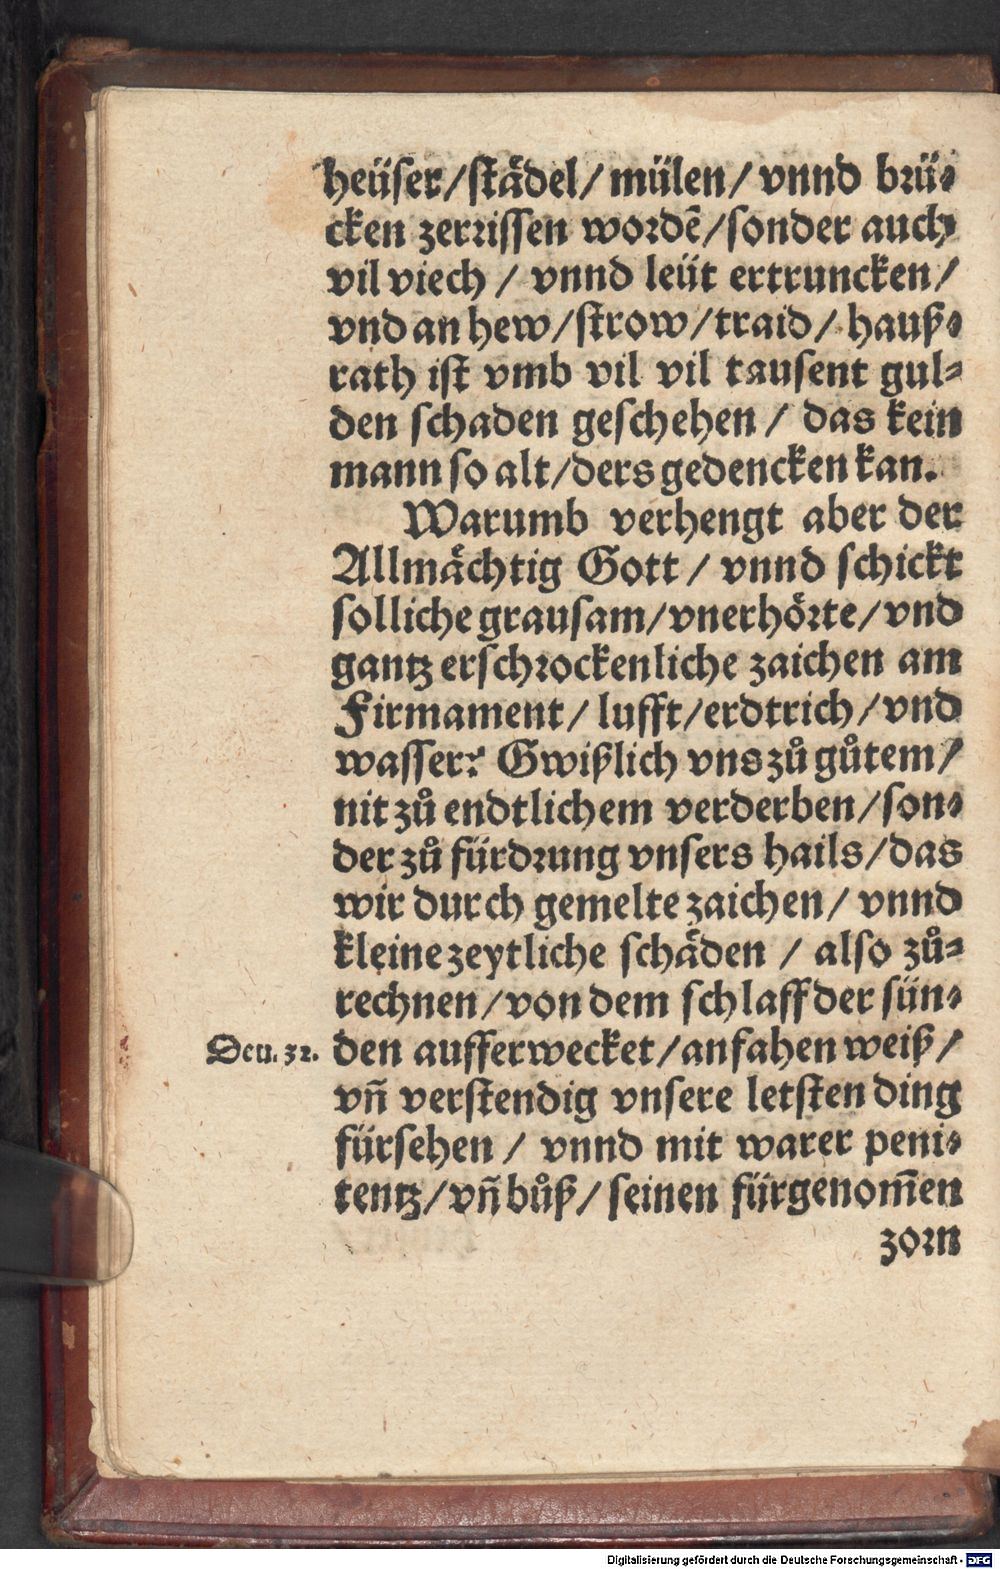 heüser/stådel/ mülen/ vnnd brü⸗
cken zerrissen wordẽ/sonder auch
vil viech / vnnd leüt ertruncken/
vnd an hew/strow/traid/ hauß⸗
rath ist vmb vil vil tausent gul⸗
den schaden geschehen / das kein
mann so alt/ders gedencken kan.
Warumb verhengt aber der
Allmåchtig Gott / vnnd schickt
solliche grausam/vnerhörte/vnd
gantz erschrockenliche zaichen am
Firmament/ lufft/erdtrich/vnd
wasser? Gwißlich vns zů gůtem/
nit zů endtlichem verderben/son⸗
der zů fürdrung vnsers hails/das
wir durch gemelte zaichen/ vnnd
kleine zeytliche schåden / also zů⸗
rechnen/von dem schlaff der sün⸗
Deu. 32. den aufferwecket/anfahen weiß/
vñ verstendig vnsere letsten ding
fürsehen / vnnd mit warer peni⸗
tentz/vñ bůß/ seinen fürgenom̃en
zorn
Digitalisierung gefördert durch die Deutsche Forschungsgemeinschaft - DFG